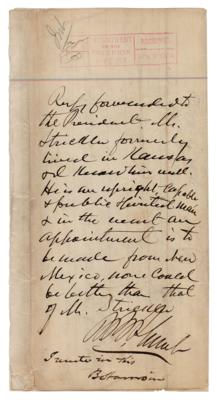 DEPARTMENT
OF THE
INTERIOR
RECEIVED
Resp. forwarded to
the President. Mr.
Strickler formerly
lived in Kansas
& I knew him well.
He is an upright, capable
& public spirited man
& in the event an
appointment is to
be made from New
Mexico, none could
be better than that
of Mr. Strickler
I unite in his